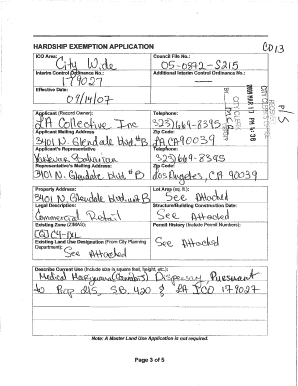 CD13
HARDSHIP EXEMPTION APPLICATION
ICO Area: Council File No.:
City Wide 05-0872-S215
Interim Control Ordinance No.: Additional Interim Control Ordinance No.:
179027
Effective Date:
09/14/07
Applicant (Record Owner): Telephone:
LA Collective Inc 323) 669-8395
Applicant Mailing Address Zip Code:
3401 N. Glendale blvd #B LA CA 90039
Applicant's Representative Telephone:
323) 669-8395
Representative's Mailing Address Zip Code:
3401 N. Glendale blvd #B Los Angeles, CA 90039
Property Address: Lot Area (sq. ft.):
3401 N. Glendale blvd unit B See Attached
Legal Description: Structure/Building Construction Date:
Commercial Retail See Attached
Existing Zone (ZIMAS): Permit History (Include Permit Numbers):
See Attached
Existing Land Use Designation (From City Planning Department):
See Attached
Describe Current Use (Include size is square feet, height, etc.):
Medical Marijuana (Cannabis) Dispensary, Pursuant
to Prop 215, S.B. 420 & LA ICO 179027
Note: A Master Land Use Application is not required.
Page 3 of 5